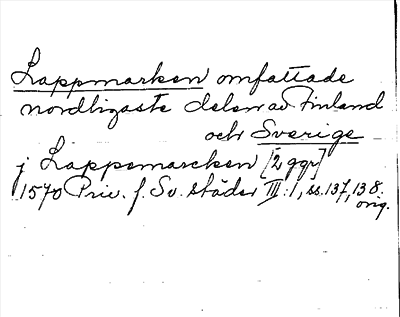 Lappmarken omfattade
nordligaste delen av Finland
och Sverige
j Lappemarcken [2 ggr]
1570 Priv. f. Sv. städer III:1, ss. 137, 138.
orig.